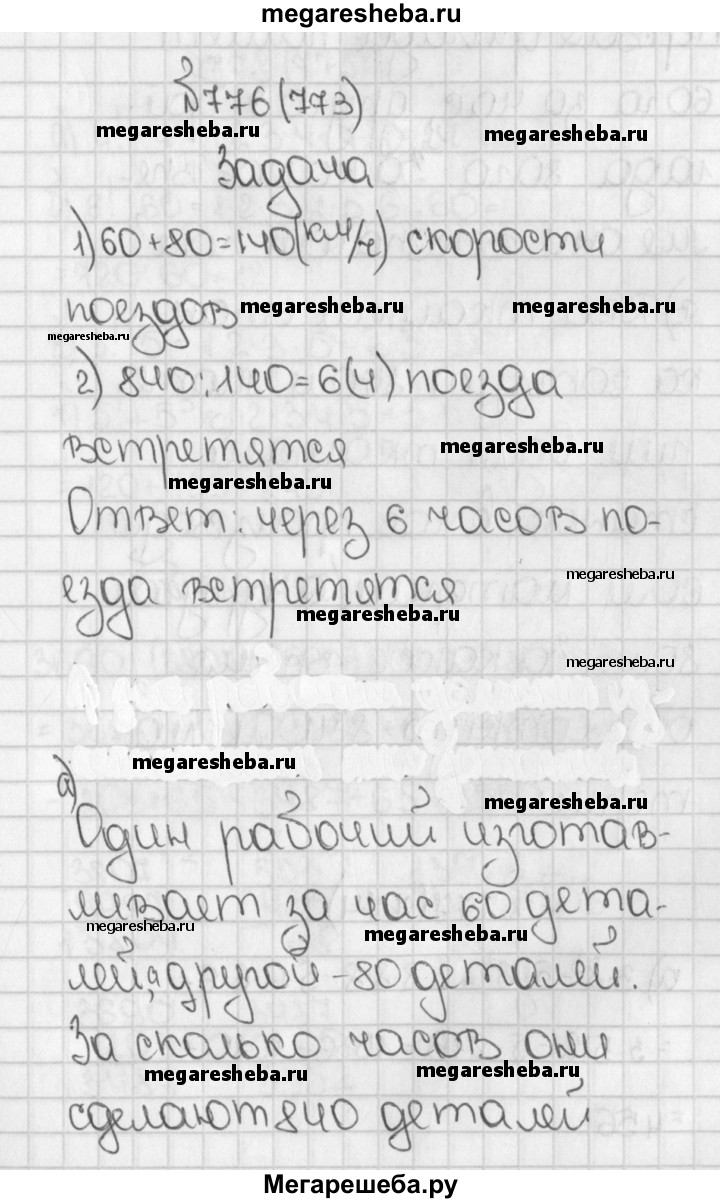 megaresheba.ru
№776(773)
megaresheba.ru
megaresheba.ru
Задача
1) 60+80=140(км/ч) скорости
поездов
megaresheba.ru
megaresheba.ru
megaresheba.ru
2) 840:140=6(ч) поезда
встретятся
megaresheba.ru
megaresheba.ru
Ответ: через 6 часов по-
megaresheba.ru
езда встретятся
megaresheba.ru
megaresheba.ru
megaresheba.ru
а)
megaresheba.ru
Один рабочий изготав-
ливает за час 60 дета-
megaresheba.ru
megaresheba.ru
лей, а другой - 80 деталей.
За сколько часов они
megaresheba.ru
megaresheba.ru
сделают 840 деталей
Мегарешеба.ру